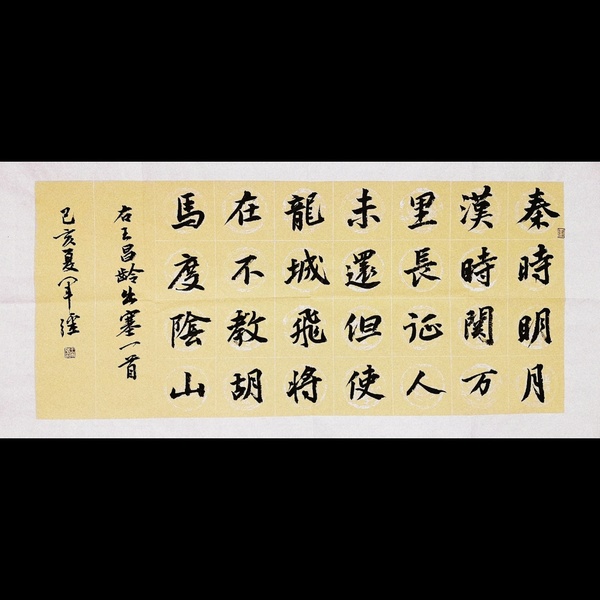 秦時明月
漢時関万
里長征人
未還但使
龍城飛将
在不教胡
馬度陰山
右王昌龄出塞一首
己亥夏军